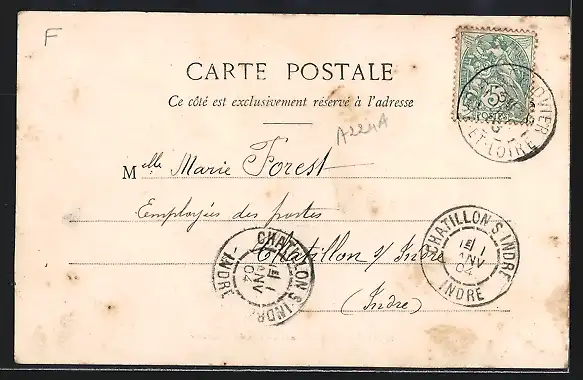 F
CARTE POSTALE
Ce côté est exclusivement réservé à l'adresse
A224A
Melle Marie Forest
Employées des postes
Chatillon s/ Indre
(Indre)
CHATILLON-S-INDRE
1
JANV
04
INDRE
CHATILLON-S-INDRE
1
JANV
04
INDRE
ET-LOIRE